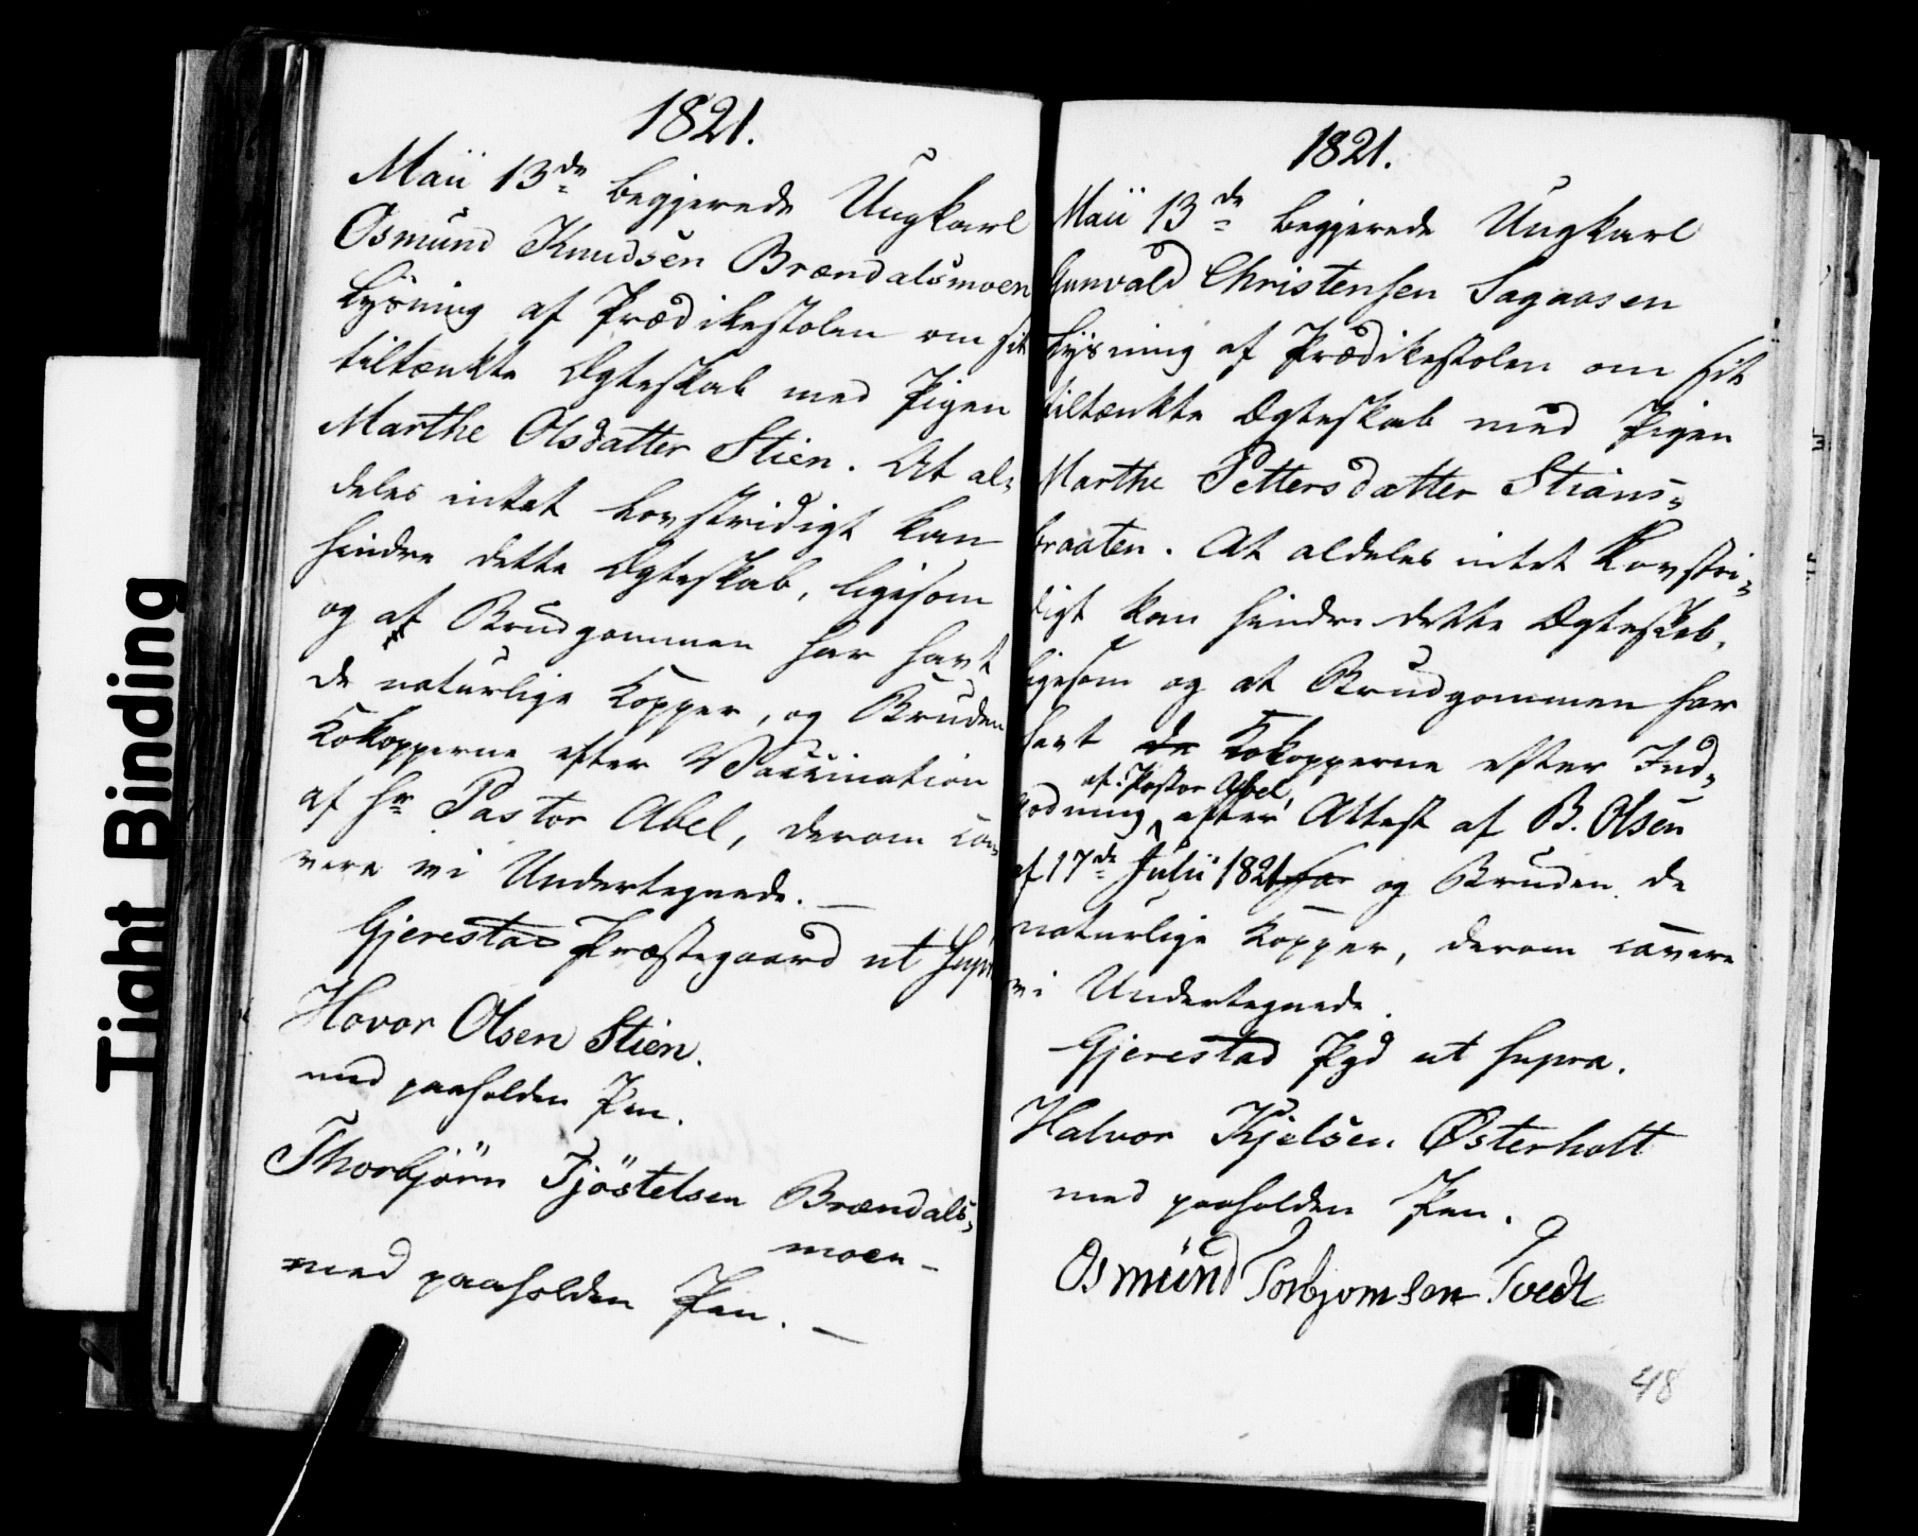 1821.
Maii 13de begjerede Ungkarl
Osmund Knudsen Brændalsmoen
Lysning af Prædikestolen om sit
tiltænkte Ægteskab med Pigen
Marthe Olsdatter Stien. At al=
deles intet Lovstridigt kan
hindre dette Ægteskab, ligesom
og at Brudgommen har havt
de naturlige Kopper, og Bruden
Kokopperne efter Vaccination
af Hr Pastor Abel, derom ca=
vere vi Undertegnede. —
Gjerestad Præstegaard ut supr
Hovor Olsen Stien.
med paaholden Pen.
Thorbjörn Tjöstelsen Brændals=
moen —
med paaholden Pen. —
1821.
Maii 13de begjerede Ungkarl
Gunvald Christensen Sagaasen
Lysning af Prædikestolen om sit
tiltænkte Ægteskab med Pigen
Marthe Pettersdatter Stians=
braaten. At aldeles intet Lovstri=
digt kan hindre dette Ægteskab,
ligesom og at Brudgommen har
havt de Kokopperne efter Ind=
af Pastor Abel,
podning efter Attest af B. Olsen
af 17de Julii 1821 har og Bruden de
naturlige Kopper, derom cavere
vi Undertegnede.
Gjerestad Pgd ut supra.
Halvor Kjelsen Østerholt
med paaholden Pen.
Osmünd Torbjomsen Tvedt
48
Tight Binding